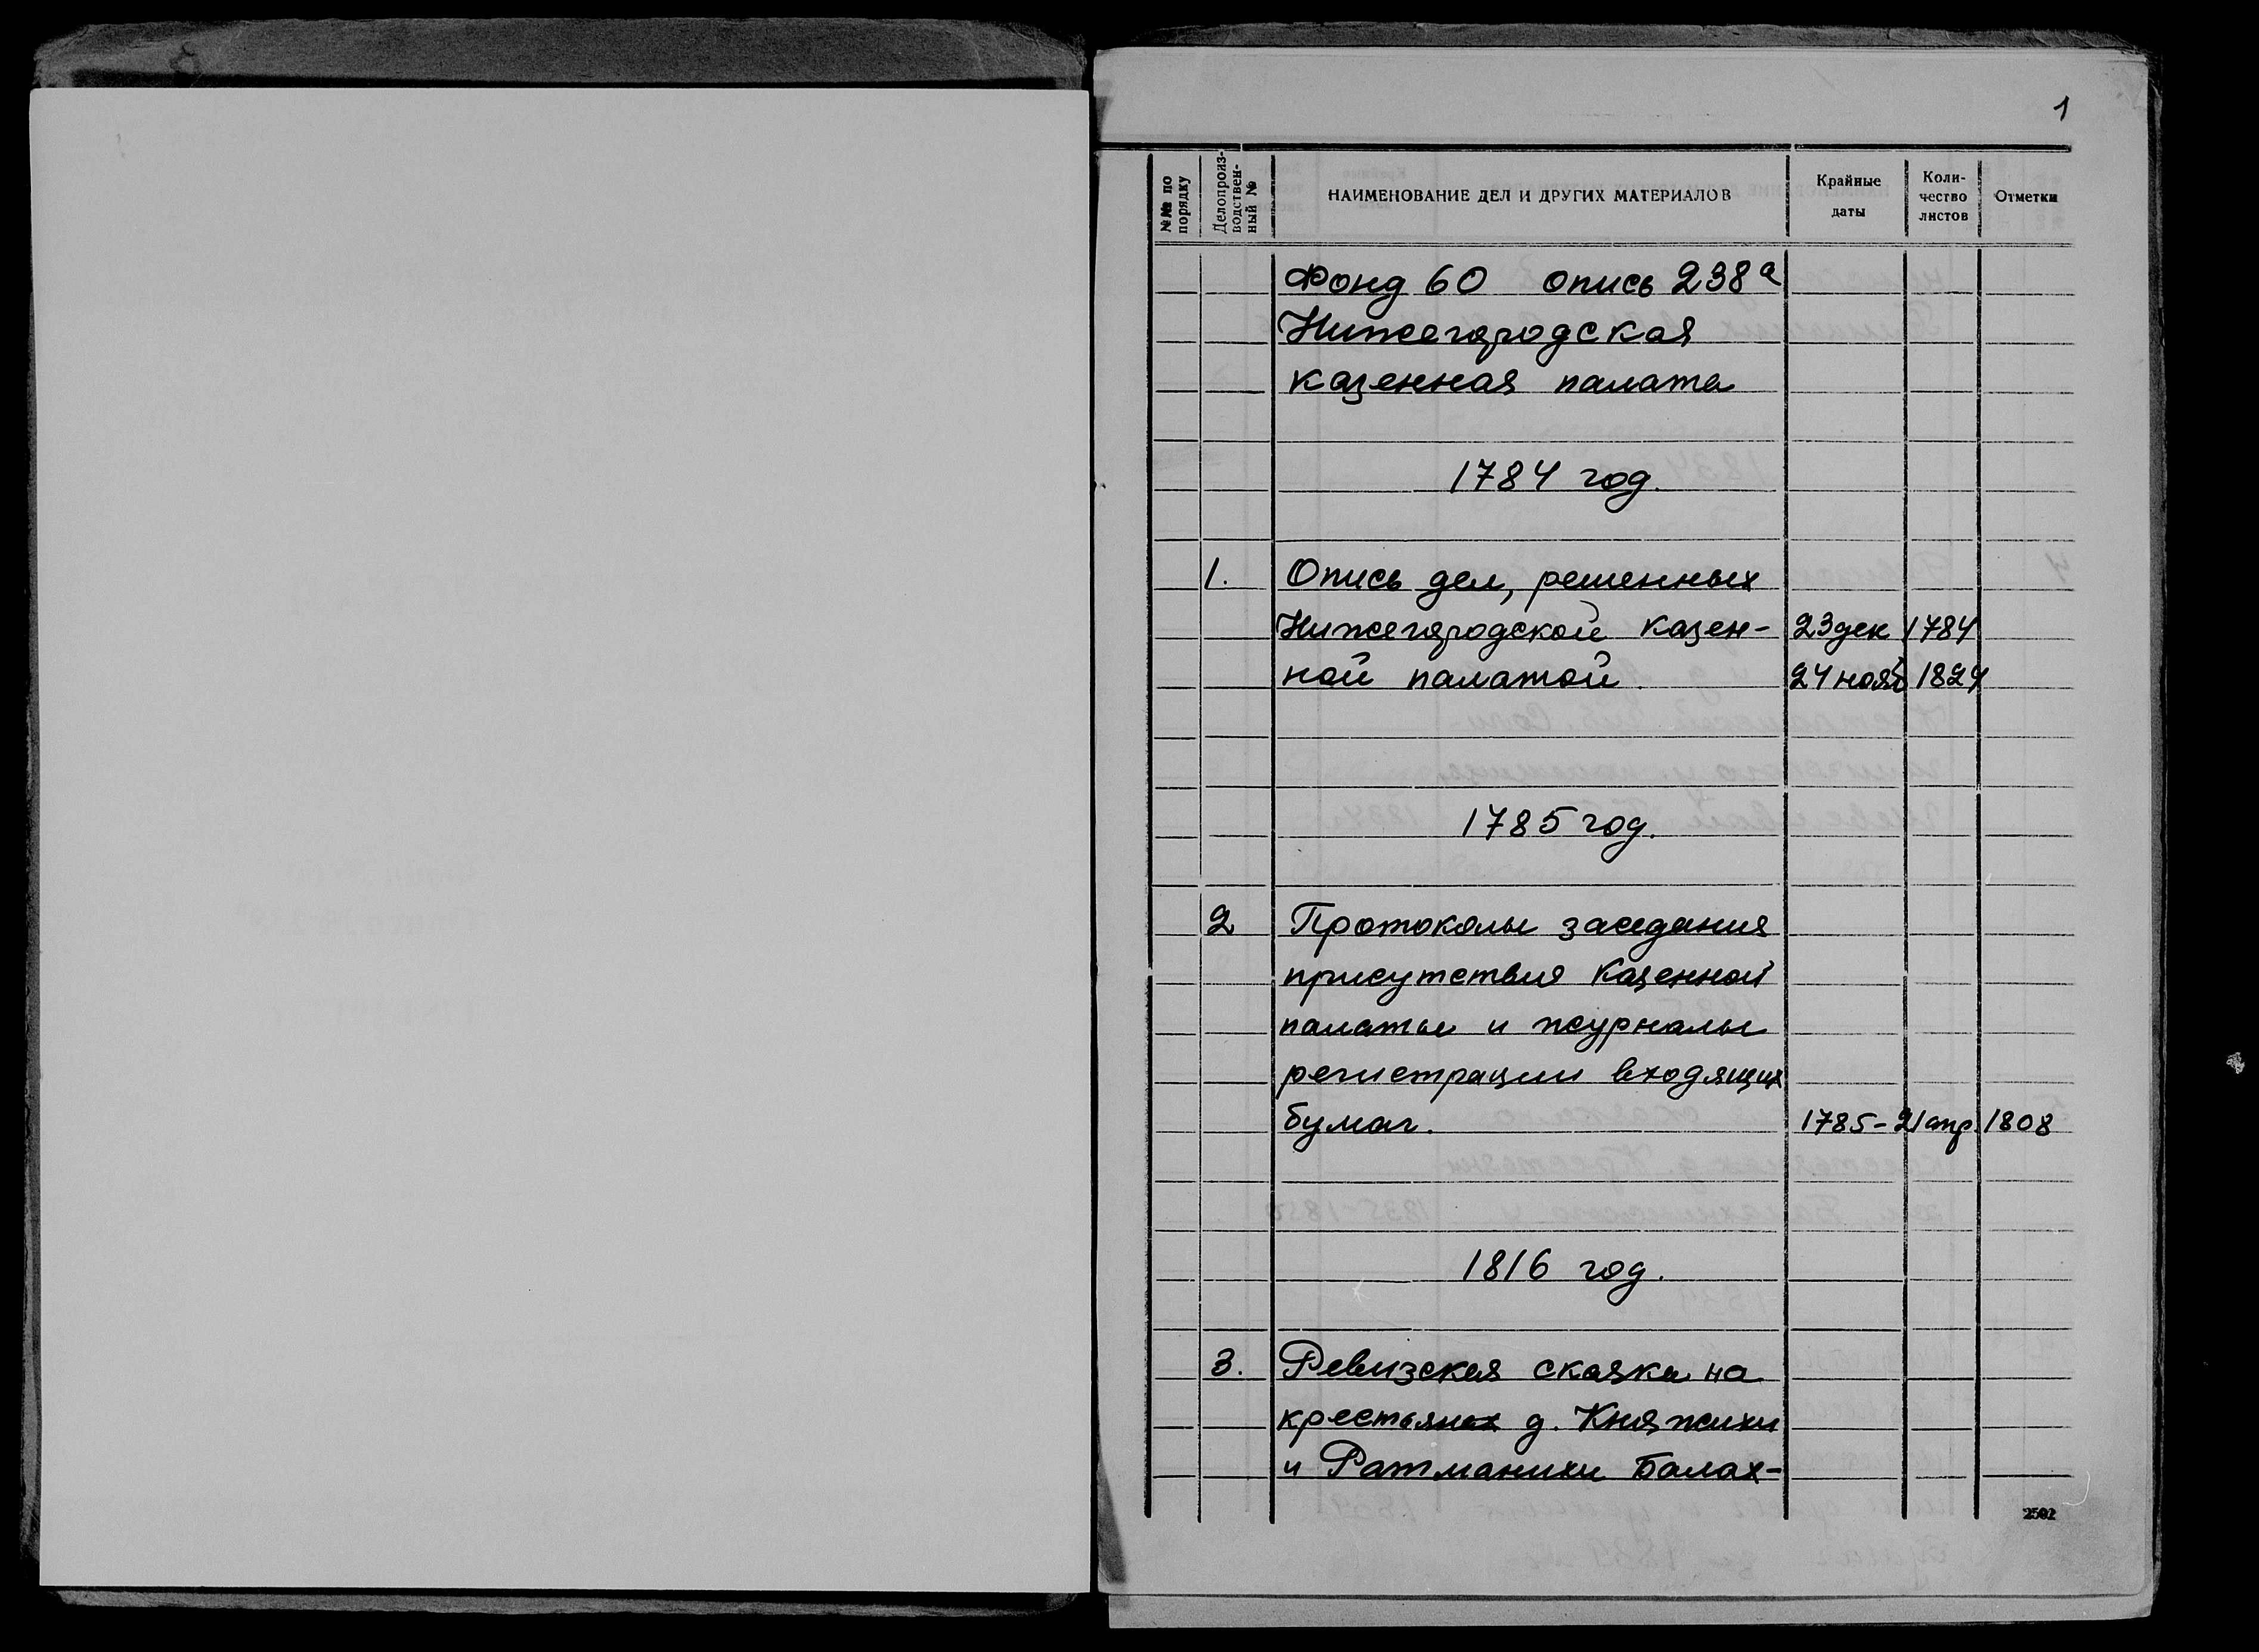 1
№№ по порядку
Делопроиз-
водствен-
ный №
НАИМЕНОВАНИЕ ДЕЛ И ДРУГИХ МАТЕРИАЛОВ
Крайные
даты
Коли-
чество
листов
Отметки
Фонд 60 опись 238а
Нижегородская
казенная палата
1784 год.
1. Опись дел, решенных
Нижегородской казен- 23 дек 1784
ной палатой. 24 нояб 1824
1785 год.
2 Протоколы заседания
присутствия казенной
палаты и журналы
регистрации входящих
бумаг. 1785-21 апр. 1808
1816 год.
3. Ревизская сказка на
крестьянах д. Княжихи
и Ратманихи Балах-
2502